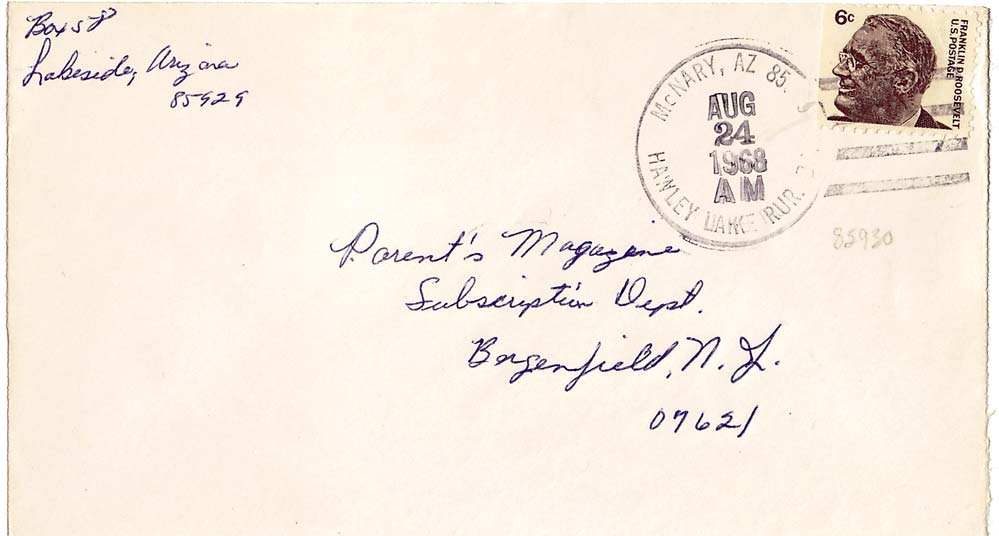 Box 58
Lakeside, Arizona
85929
McNARY, AZ 85
AUG
24
1968
AM
HAWLEY LAKE RUR.
6c
FRANKLIN D. ROOSEVELT
U.S. POSTAGE
85930
Parent's Magazine
Subscription Dept.
Bergenfield, N. J.
07621